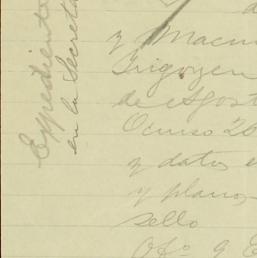 Expediente
en la Secreta
y Macu
Irigoyen
de Agost
Ocurso 26
y datos e
y plano
sello
Of° 9 E